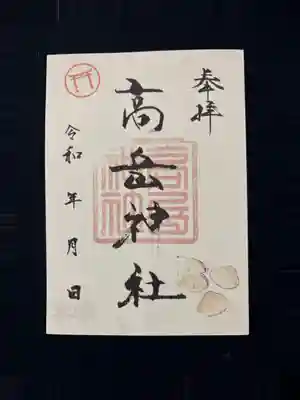 奉拝
高岳神社
令和 年 月 日